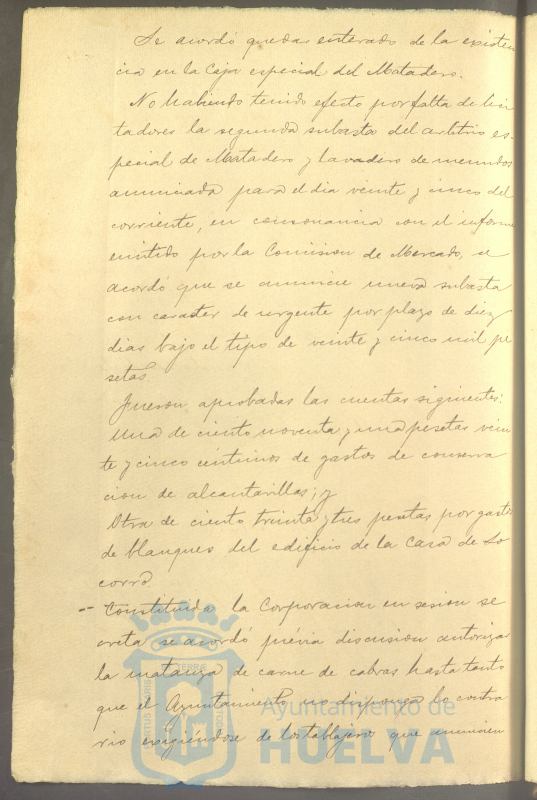 Se acordó quedar enterado de la existen
cia en la Caja especial del Matadero.
No habiendo tenido efecto por falta de lici
tadores la segunda subasta del arbitrio es-
pecial de Matadero y lavadero de menudos
anunciada para el dia veinte y cinco del
corriente, en consonancia con el informe
emitido por la Comision de Mercado, se
acordó que se anuncie nueva subasta
con caracter de urgente por plazo de diez
dias bajo el tipo de veinte y cinco mil pe
setas.
Fueron aprobadas las cuentas siguientes:
Una de ciento noventa y una pesetas vein
te y cinco céntimos de gastos de conserva
cion de alcantarillas; y
Otra de ciento treinta y tres pesetas por gastos
de blanqueo del edificio de la Casa de So
corro.
-- Constituida la Corporacion en sesion se
creta se acordó prévia discusion autorizar
la matanza de carne de cabras hasta tanto
que el Ayuntamiento no disponga lo contra
rio exigiéndose de los tablajeros que anuncien
Ayuntamiento de
HUELVA